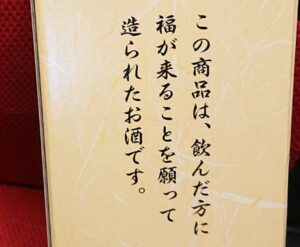 この商品は、飲んだ方に
福が来ることを願って
造られたお酒です。